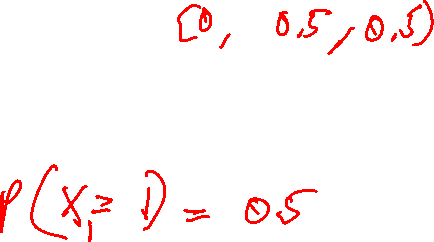 [0, 0.5, 0.5)
P(X₁ = 1) = 0.5